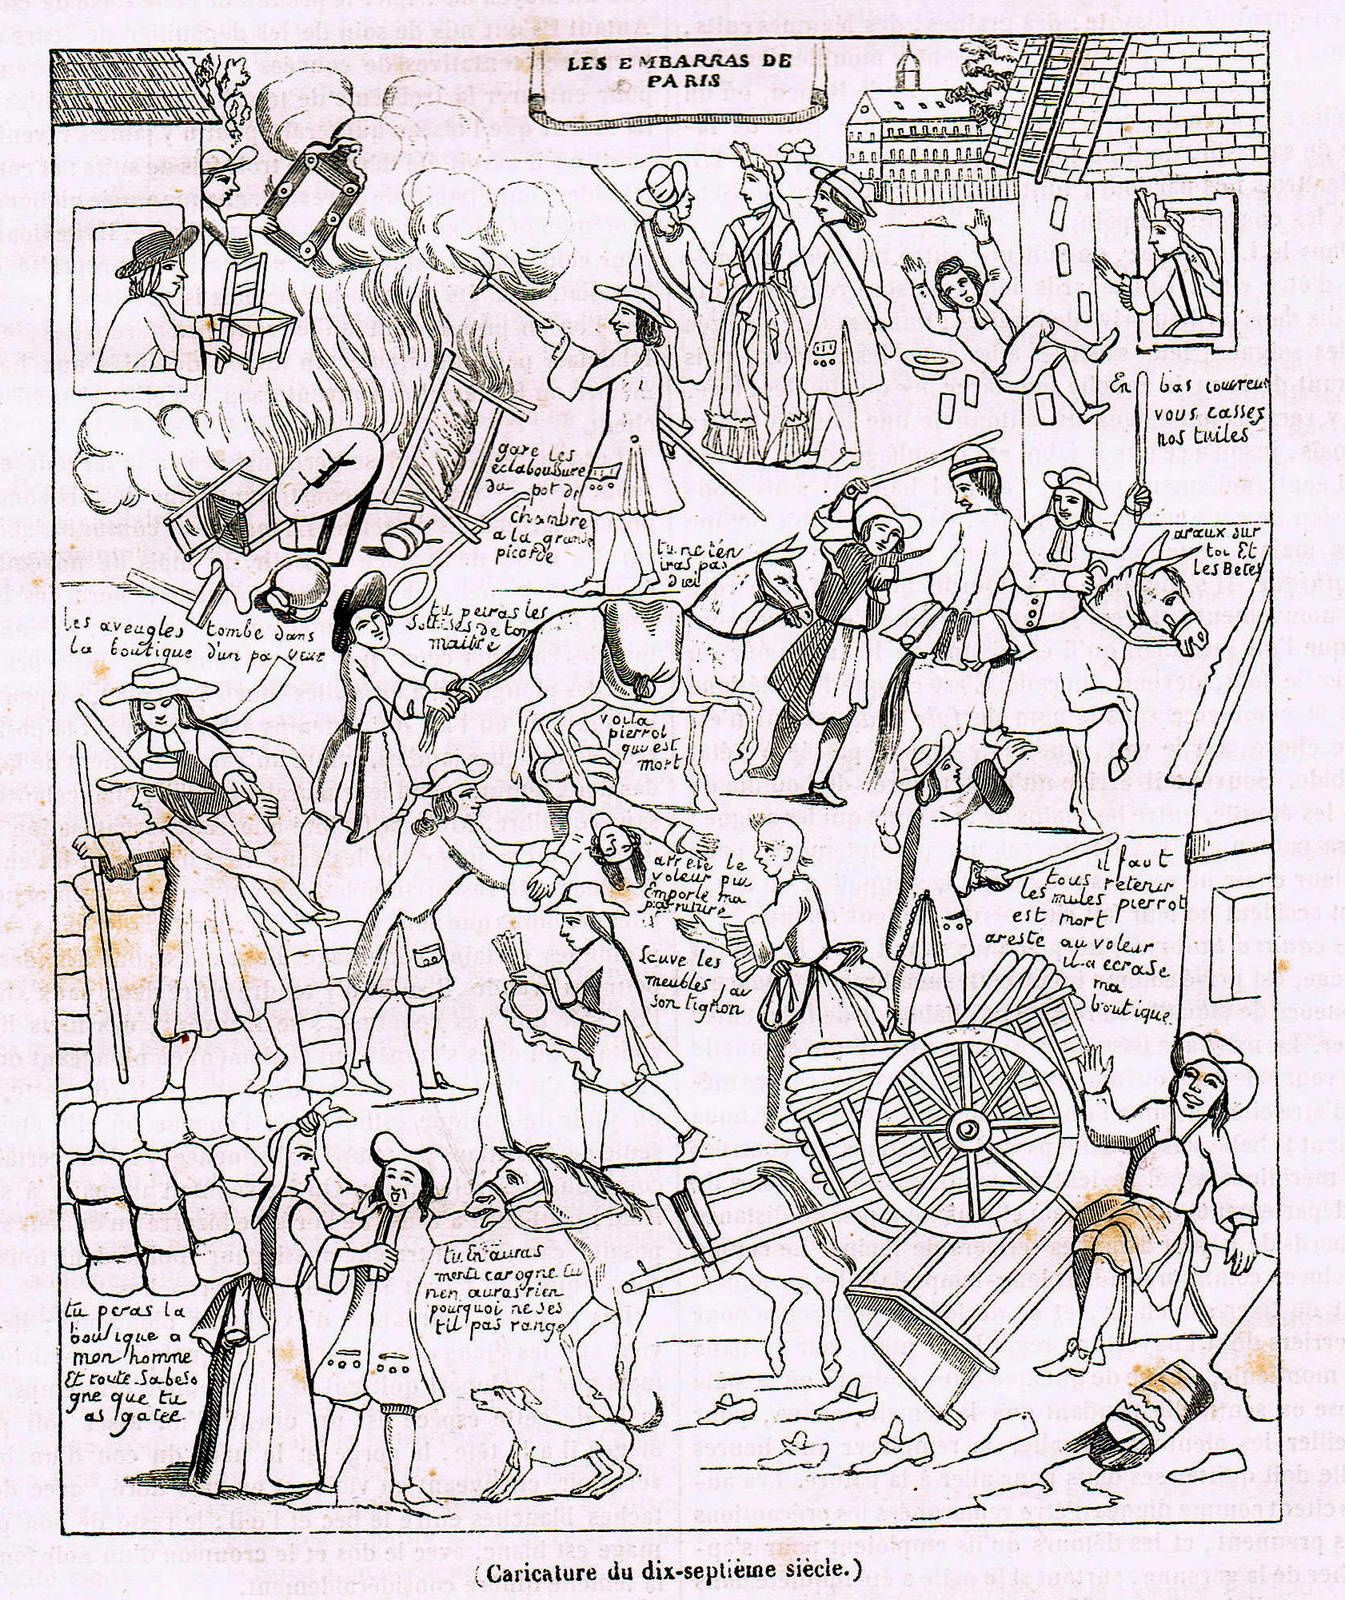 LES EMBARRAS DE
PARIS
En bas coureur
vous casses
nos tuiles
gare les
eclaboussure
du pot de
chambre
a la grande
picarde
tu ne ten
iras pas
araux sur
toi Et
les Betes
les aveugles tombe dans
la boutique d'un pa
tu peiras les
Sottises de ton
maitre
voila
pierrot
qui est
mort
arrete le
voleur qui
Emporte ma
il faut
tous retenir
les mules pierrot
est mort
areste au voleur
il a ecrase
ma
boutique
Scuve les
meubles
son tignon
tu en auras
menti carogne tu
nen auras rien
pourquoi ne ses
til pas range
tu peras la
boutique a
mon homme
Et toute sabeso
gne que tu
as gatee
(Caricature du dix-septième siècle.)